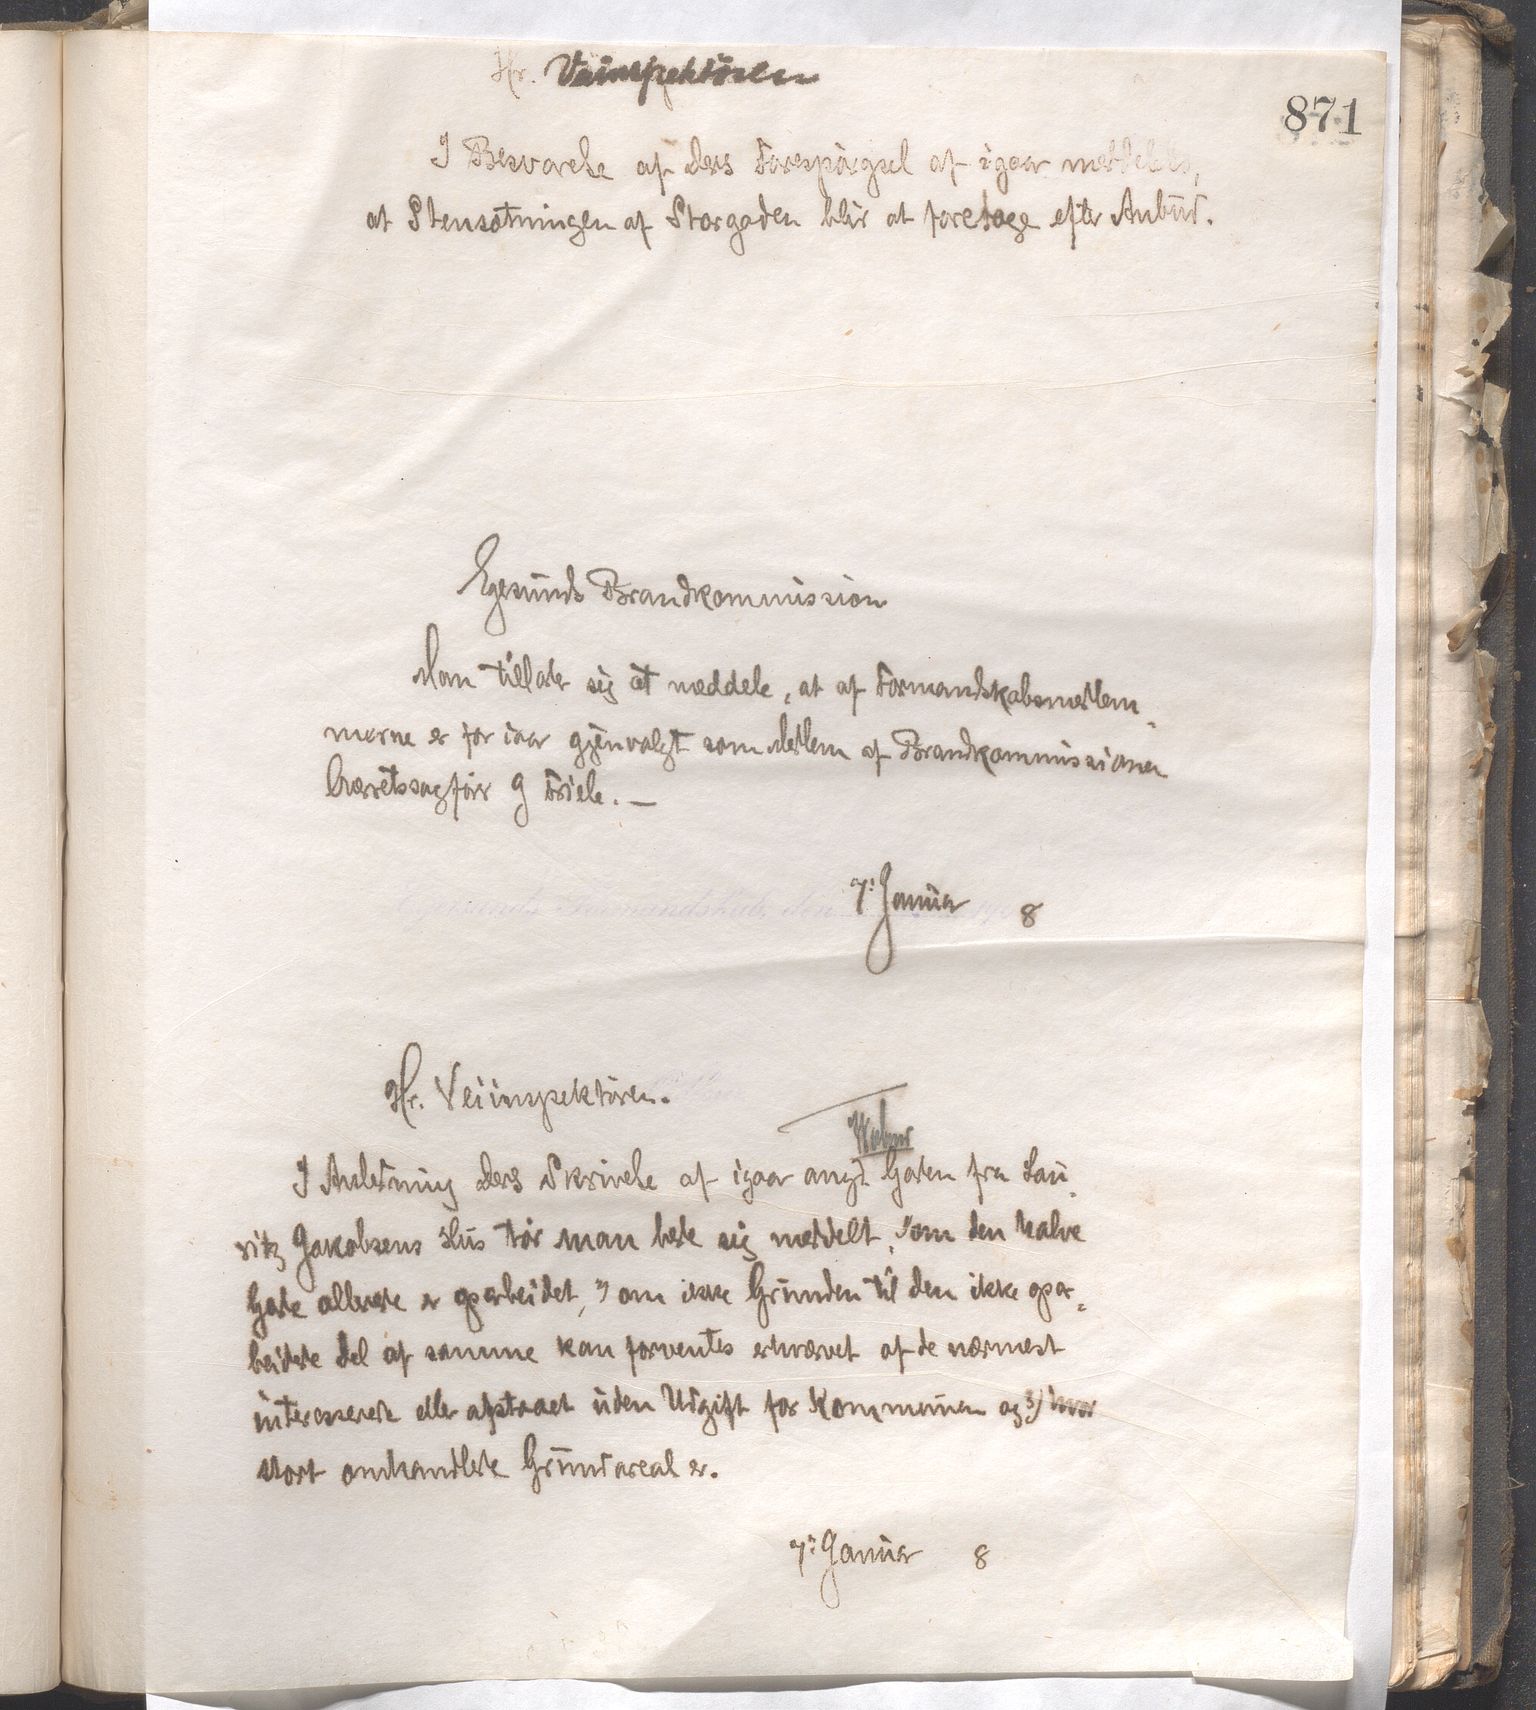 871
Hr. Veiinspektören
I Besvarelse af Deres Forespörgsel af igaar meddeles,
at Stensætningen af Storgaden blir at foretage efter Anbud.
Egersunds Brandkommission
Man tillader sig at meddele, at af Formandskabsmedlem-
merne er for iaar gjenvalgt som Medlem af Brandkommissionen
Overretssagförer G Friele. —
Egersunds Formandskab, den 7: Januar 1908
Hr. Veiinspektören.
I Anledning Deres Skrivelse af igaar angd. Gaden fra Lau-
ritz Jakobsens Hus tör man bede sig meddelt, 1) om den halve
Gade allerede er oparbeidet, 2) om ikke Grunden til den ikke opar-
beidede Del af samme kan forventes erhvervet af de nærmest
interesserede eller afstaaet uden Udgift for Kommunen og 3) hvor
stort omhandlede Grundareal er.
7: Januar 8